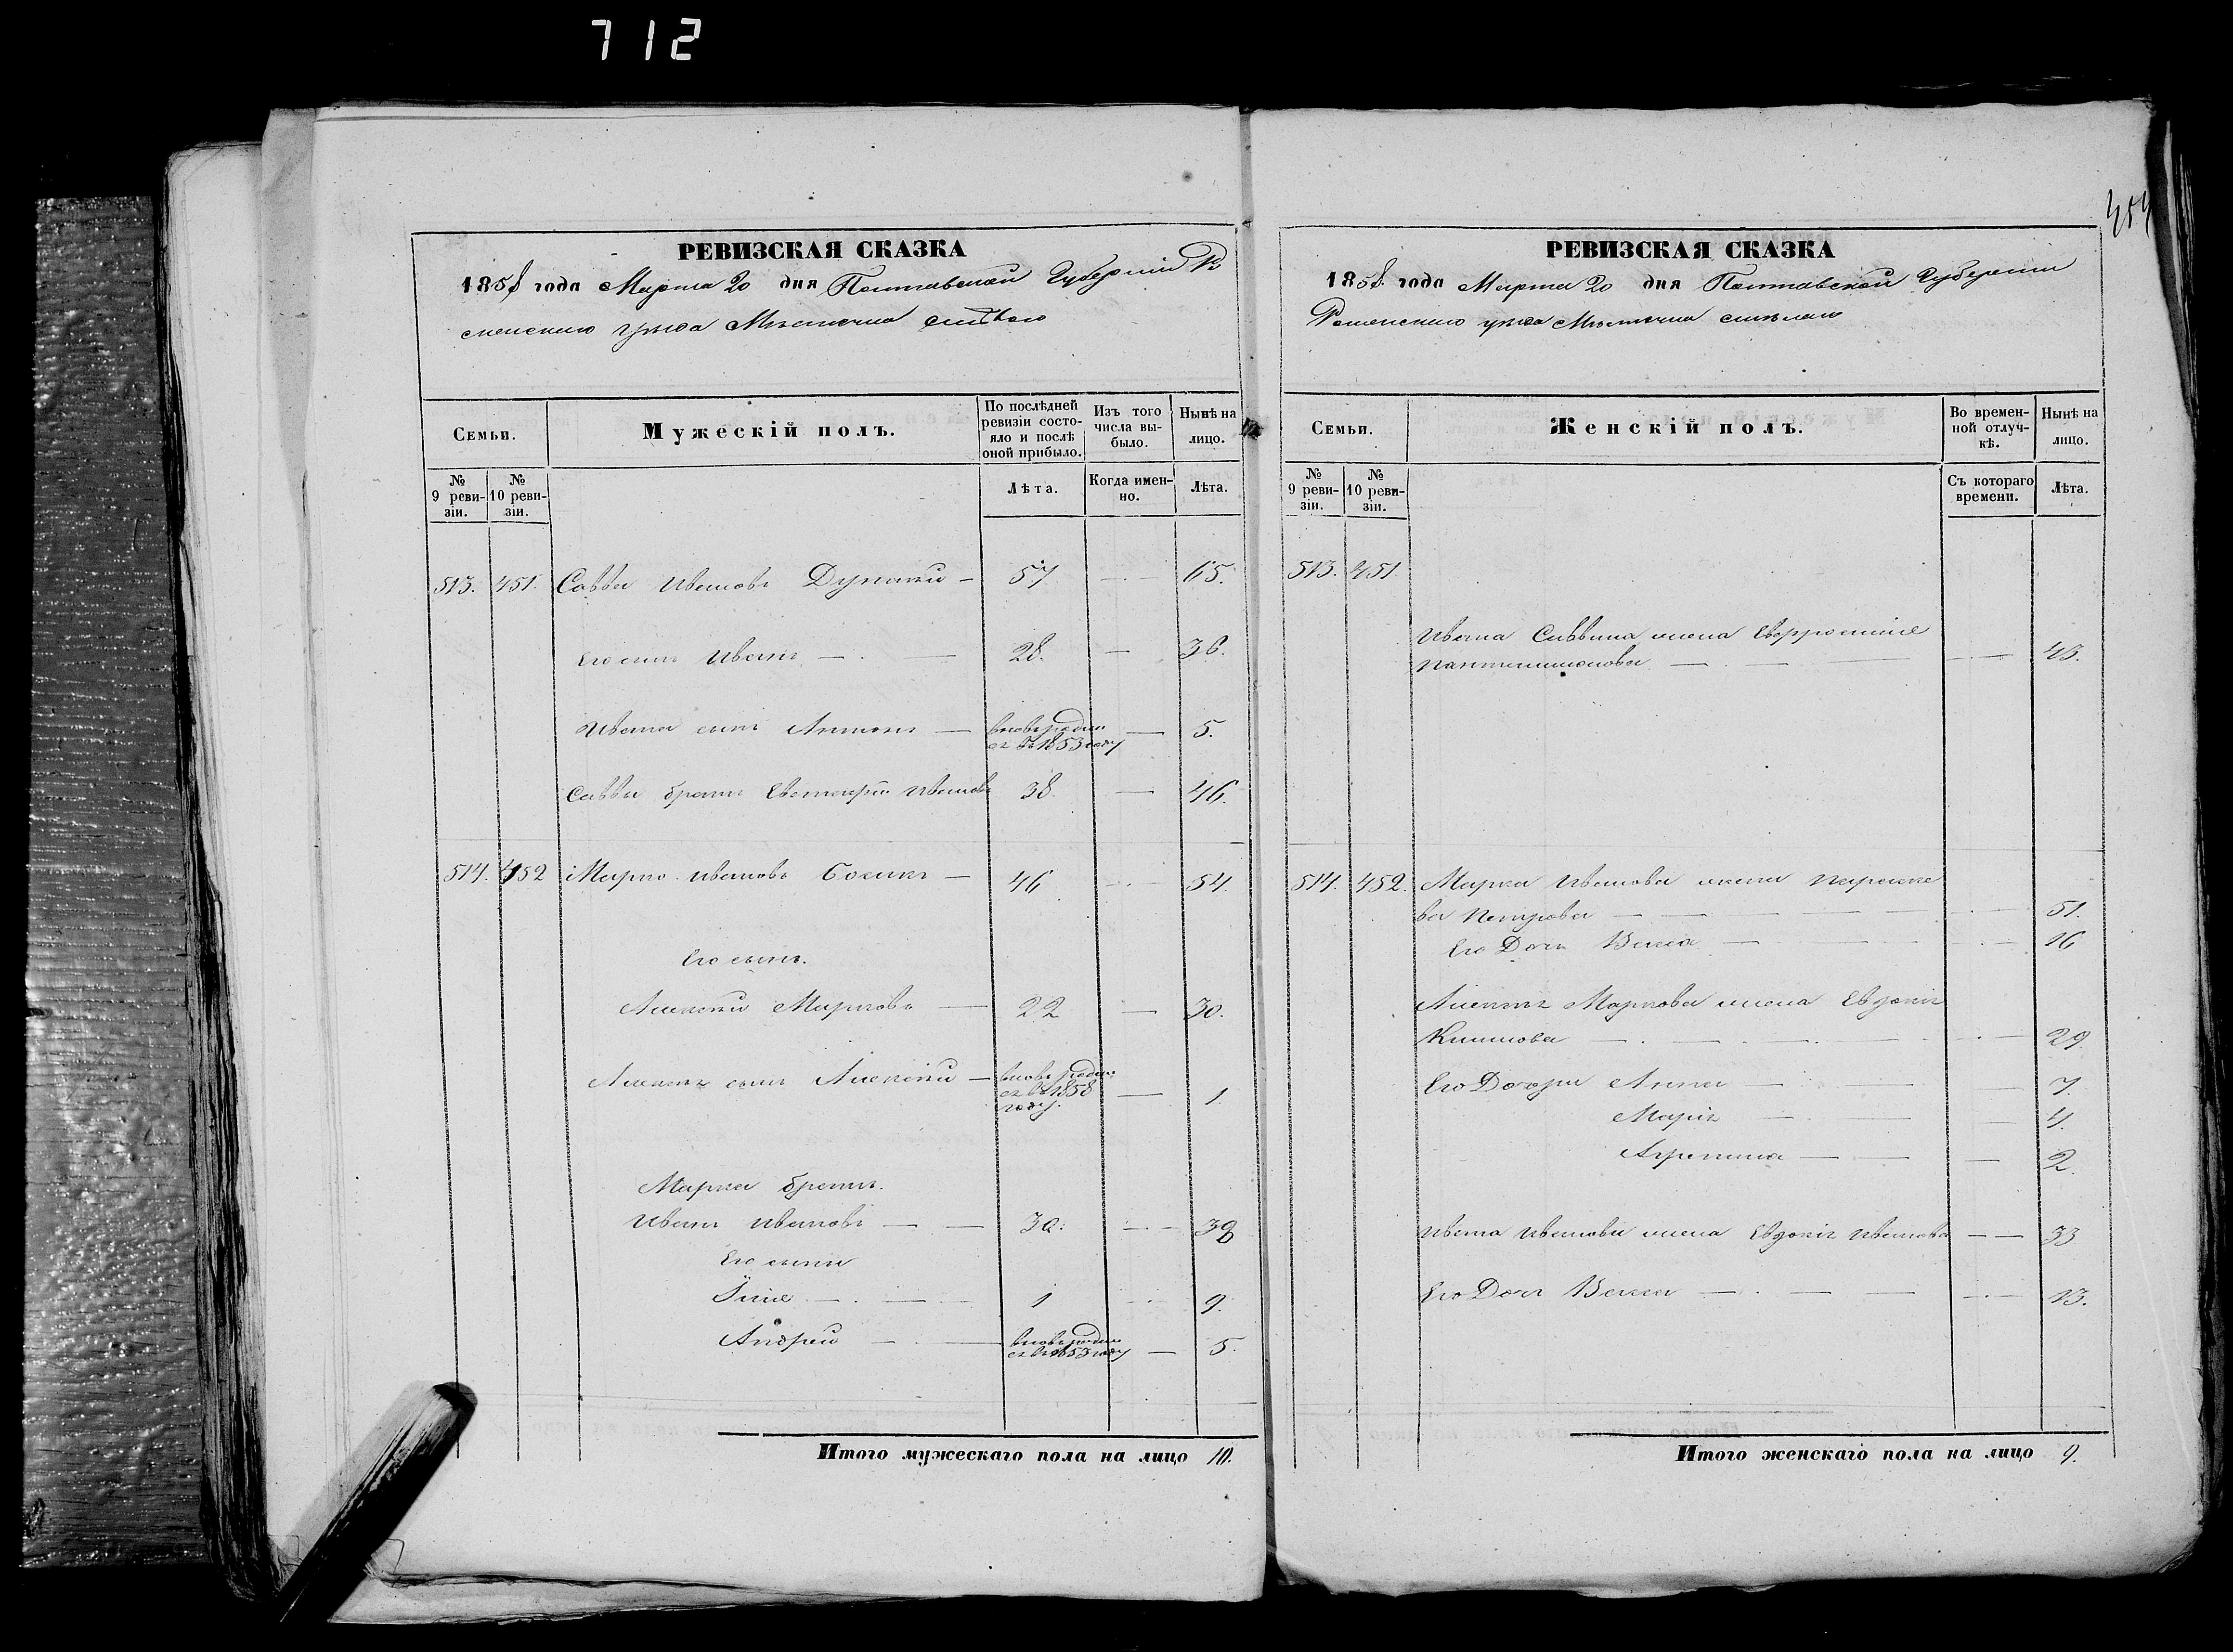 712
РЕВИЗСКАЯ СКАЗКА
1858 года Марта 20 дня Полтавской Губерніи Ро
менскаго уѣзда Мѣстечка
Семьи.
Мужескій полъ.
По послѣдней ревизіи состояло и послѣ оной прибыло.
Изъ того числа выбыло.
Нынѣ на лицо.
№ 9 ревизіи.
№ 10 ревизіи.
Лѣта.
Когда именно.
Лѣта.
513. 451. Савва Ивановъ 57 65.
Его сынъ Иванъ 28. 36.
Ивана сынъ Антонъ вновь родил
ся въ 1853 году 5.
Саввы братъ Ивановъ 38. 46.
514. 452 Марко Ивановъ 46 54.
Его сынъ.
Алексѣй Марковъ 22 30.
Алексѣя сынъ Алексѣй вновь родил
ся въ 1858
году. 1.
Марка братъ.
Иванъ Ивановъ 30. 38
Его сыни
1 9.
Андрей вновь родил
ся въ 1853 году 5.
Итого мужескаго пола на лицо 10.
454
РЕВИЗСКАЯ СКАЗКА
1858. года Марта 20 дня Полтавской Губерніи
Роменскаго уѣзда Мѣстечка
Семьи.
Женскій полъ.
Во временной отлучкѣ.
Нынѣ на лицо.
№ 9 ревизіи.
№ 10 ревизіи.
Съ котораго времени.
Лѣта.
513. 451
Ивана Саввина жена Евфросинія
Пантелимонова 43.
514. 452. Марка Иванова жена Параске
ва Петрова 51.
Его Дочь 16
Алексѣя Маркова жена Евдокія
29
Его Дочери Анна 7.
Марія 4.
Агрепина 2.
Ивана Иванова жена Евдокія Иванова 33
Его Дочь 13.
Итого женскаго пола на лицо 9.